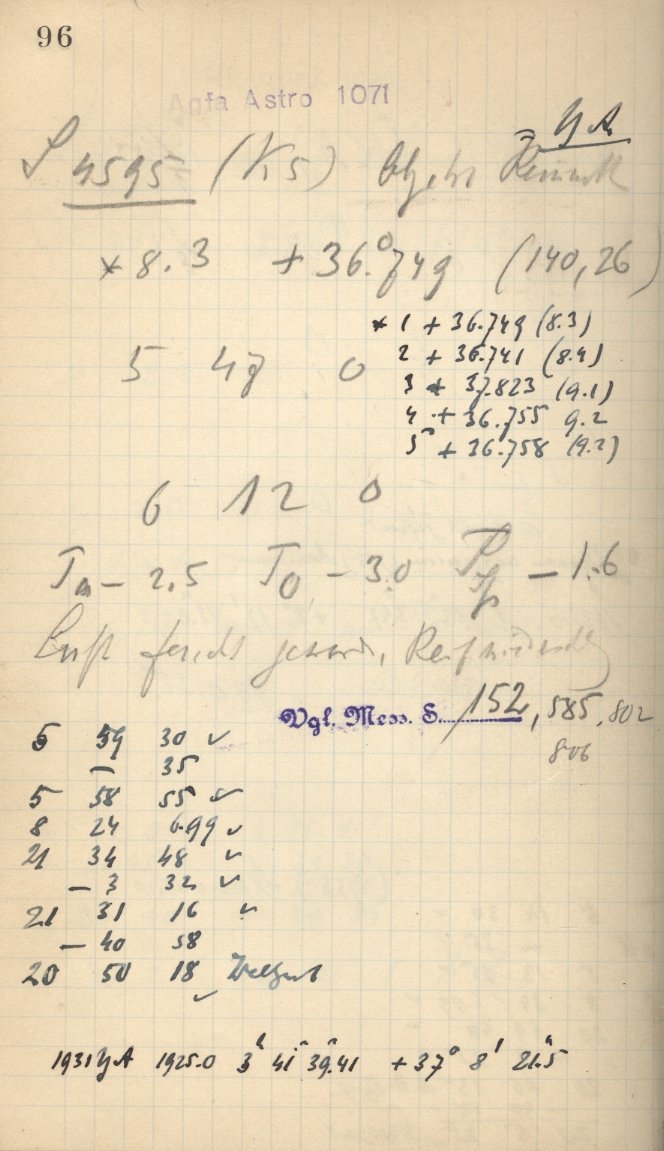 96
Agfa Astro 1071
YA
S 4595 (K5) Objekt
* 8.3 + 36.°749 (140,26)
* 1 + 36.749 (8.3)
2 + 36.741 (8.4)
3 + 37.823 (9.1)
4 + 36.755 9.2
5 + 36.758 (9.2)
5 48 0
6 12 0
Ta - 2.5 To - 3.0 - 1.6
Luft feucht geword., Reifniederschl
Vgl. Mess. S. 152, 585, 802
806
5 59 30 ✓
- 35
5 58 55 ✓
8 24 6.99 ✓
21 34 48 ✓
- 3 32 ✓
21 31 16 ✓
- 40 58
20 50 18 Weltzeit
✓
1931 YA 1925.0 3h 41m 39s.41 + 37° 8' 21".5